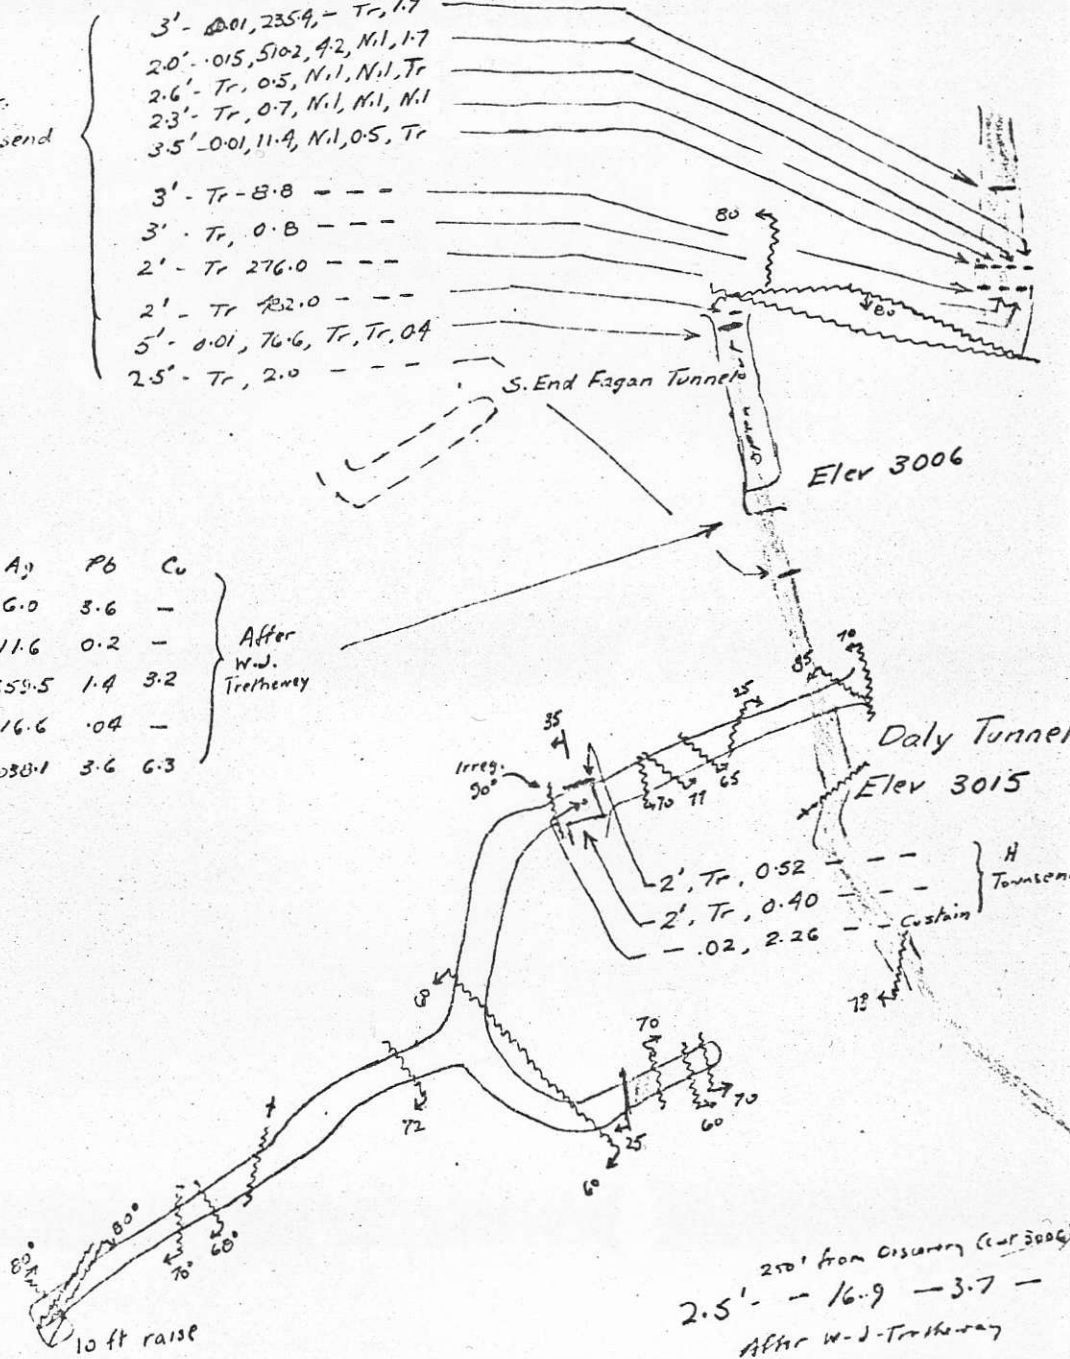 3' - 0.01, 235.4, - Tr, 1.7
2.0' - .015, 510.2, 4.2, Nil, 1.7
2.6' - Tr, 0.5, Nil, Nil, Tr
2.3' - Tr, 0.7, Nil, Nil, Nil
3.5' - 0.01, 11.4, Nil, 0.5, Tr
3' - Tr - 8.8 - - -
3' - Tr, 0.8 - - -
2' - Tr 276.0 - - -
2' - Tr 182.0 - - -
5' - 0.01, 76.6, Tr, Tr, 0.4
2.5' - Tr, 2.0 - - -
send
80
80
S. End Fagan Tunnel
Elev 3006
Ag Pb Cu
6.0 3.6 -
11.6 0.2 -
59.5 1.4 3.2
16.6 .04 -
038.1 3.6 6.3
After
W.J.
Tretheway
85
70
25
35
Irreg.
90°
70 77 65
Daly Tunnel
Elev 3015
2', Tr, 0.52 - - -
2', Tr, 0.40 - - -
- .02, 2.26 - - Custain
H
Townsen
73
60
70
70
60
72
25
60
80°
80°
70°
60°
10 ft raise
250' from Discovery (cut 3006)
2.5' - - 16.9 - 3.7 -
After W-J-Tretheway